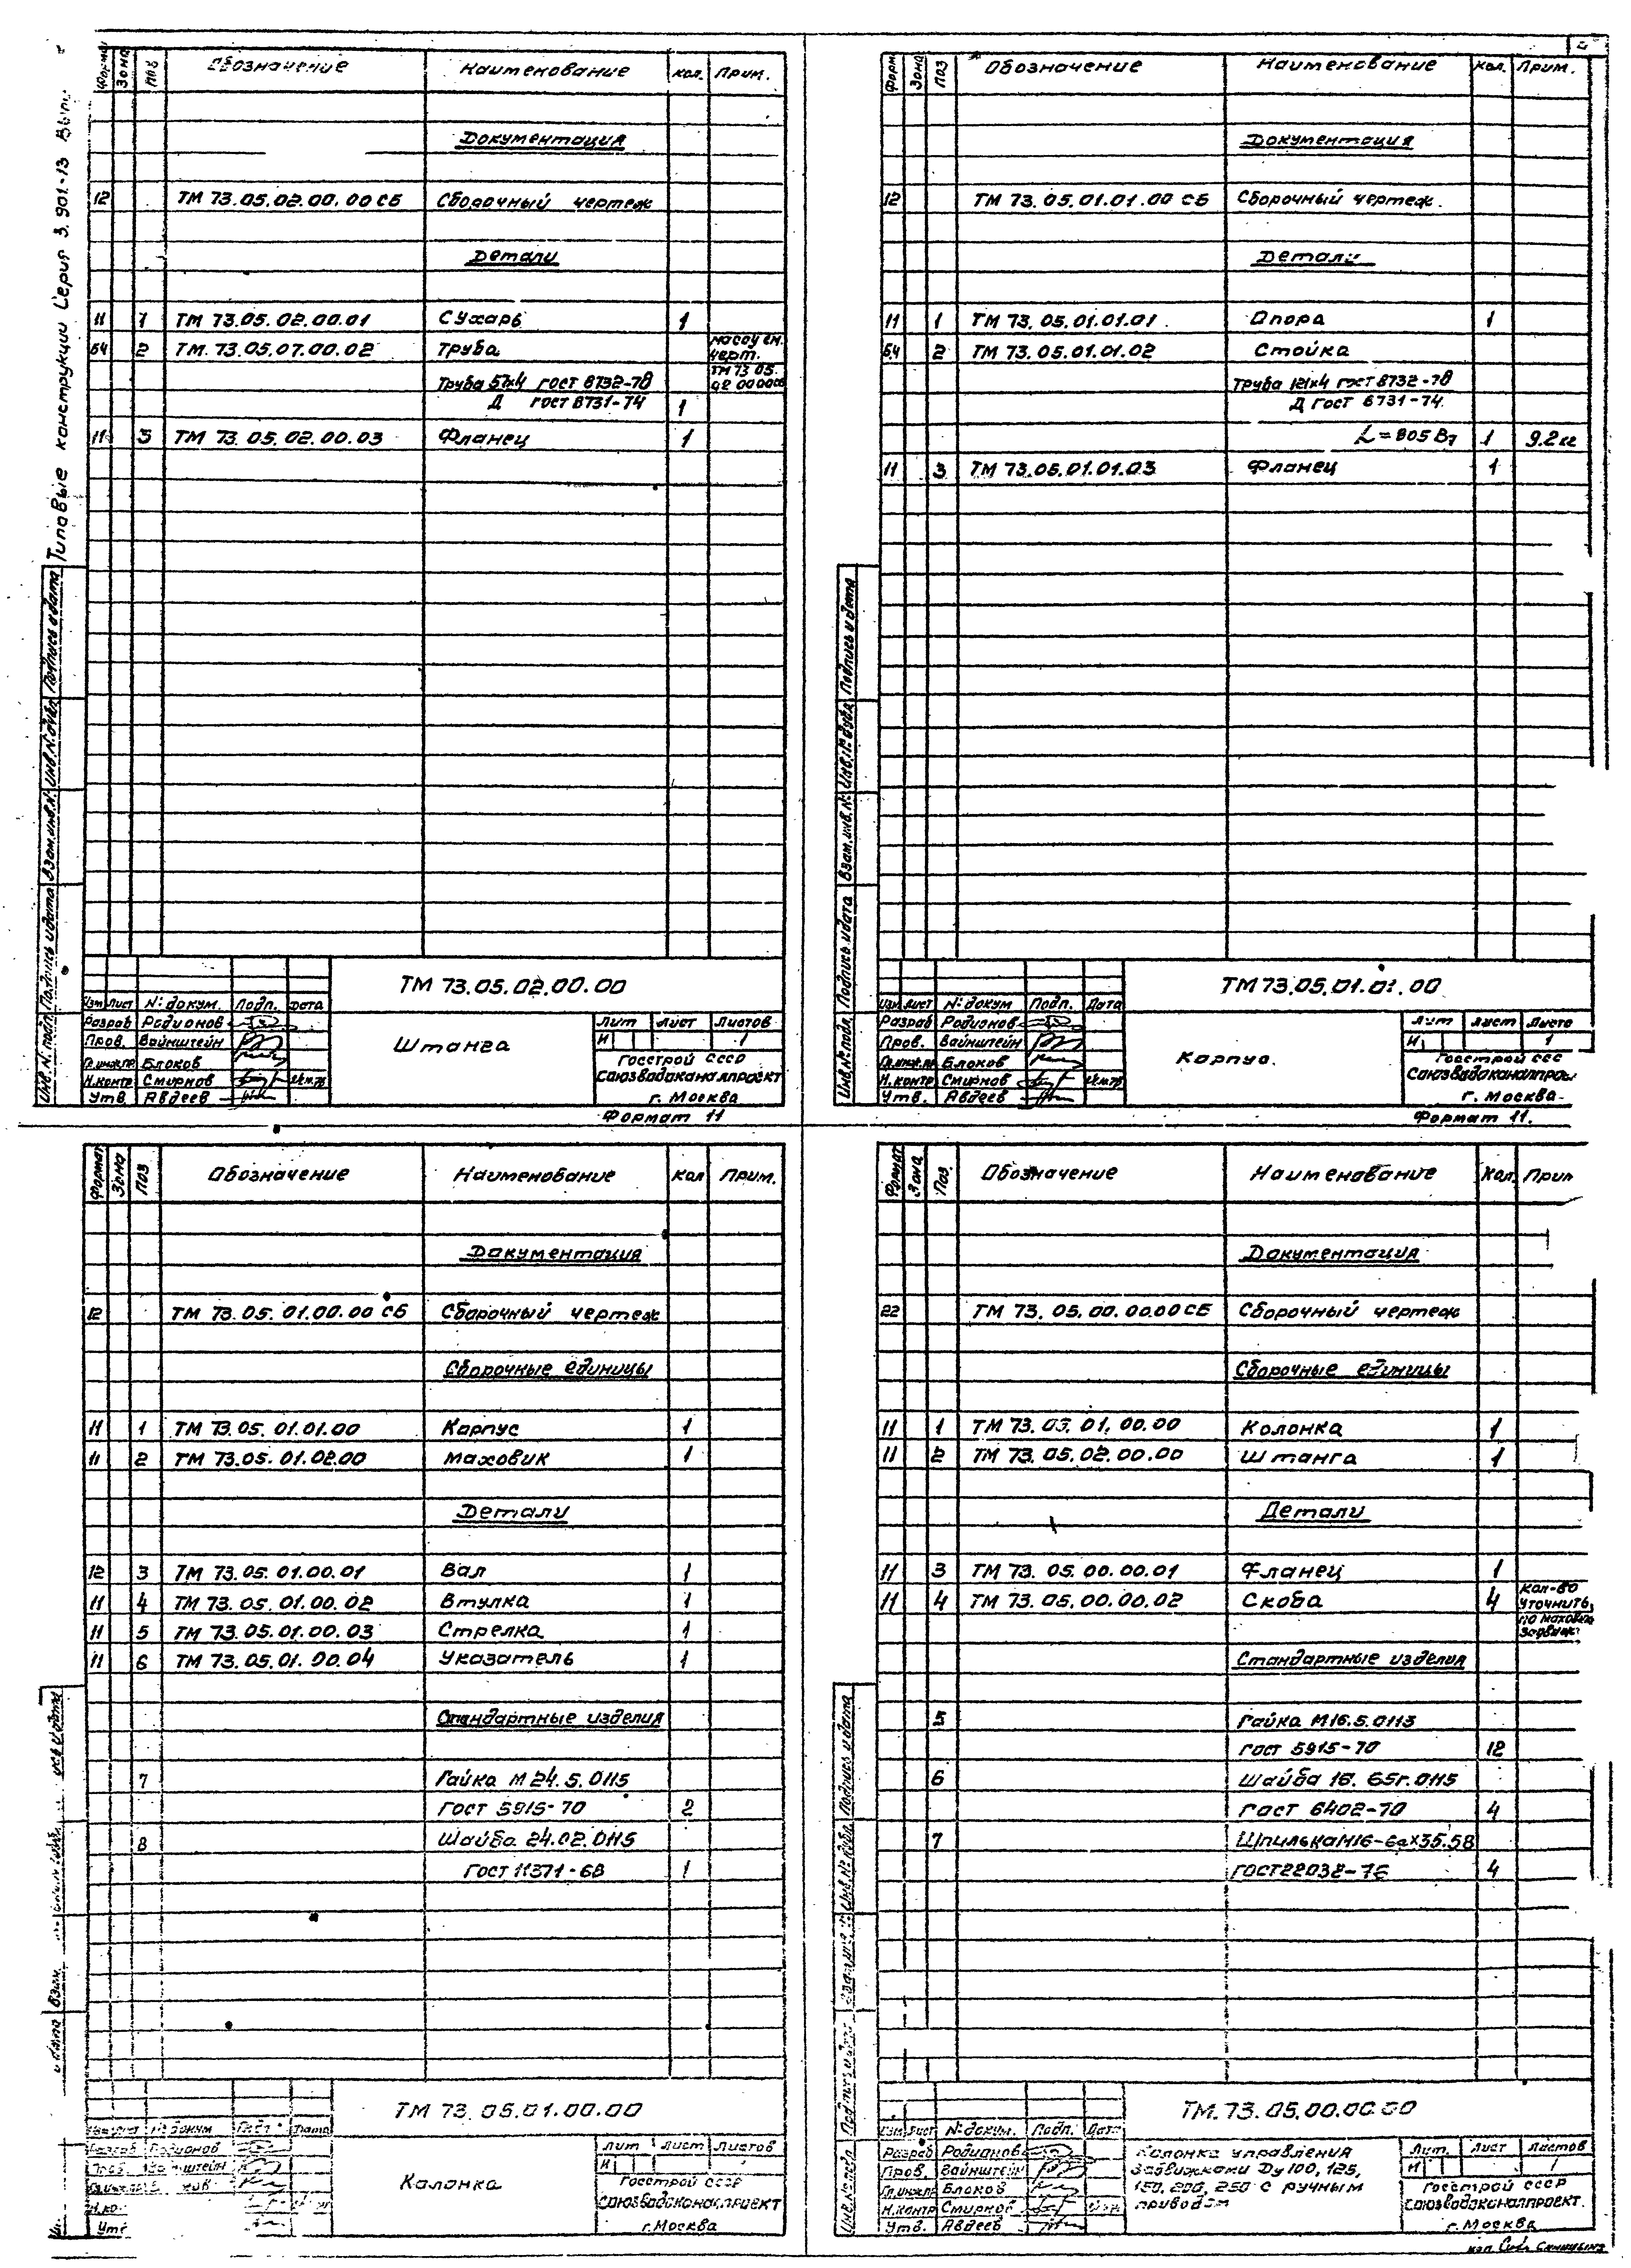 Типовые конструкции Серия 3.901-13
Зона Поз Обозначение Наименование Кол. Прим.
Документация
12 ТМ 73.05.02.00.00 СБ Сборочный чертеж
Детали
11 1 ТМ 73.05.02.00.01 Сухарь 1
БЧ 2 ТМ. 73.05.07.00.02 Труба
черт.
ТМ 73 05.
Труба 57х4 ГОСТ 8732-78
Д ГОСТ 8731-74 1
11 3 ТМ 73.05.02.00.03 Фланец 1
Инв.N.подл. Подпись и дата Взам.инв.N. Инв.N.дубл. Подпись и дата
ТМ 73.05.02.00.00
Изм Лист N: докум. Подп. Дата
Разраб Родионов
Пров. Вайнштейн
Гл.инж.пр Блоков
Н.контр Смирнов
Утв. Авдеев
Штанга
Лит Лист Листов
И 1
Госстрой СССР
Союзводоканалпроект
г. Москва
Формат 11
Зона Поз Обозначение Наименование Кол. Прим.
Документация
12 ТМ 73.05.01.01.00 СБ Сборочный чертеж.
Детали
11 1 ТМ 73.05.01.01.01 Опора 1
БЧ 2 ТМ 73.05.01.01.02 Стойка
Труба 121х4 ГОСТ 8732-78
Д ГОСТ 8731-74.
L=805 В7 1 9.2 кг
11 3 ТМ 73.05.01.01.03 Фланец 1
Инв.N.подл. Подпись и дата Взам.инв.N. Инв.N.дубл. Подпись и дата
ТМ 73.05.01.01.00
Изм Лист N: докум Подп. Дата
Разраб Родионов
Пров. Вайнштейн
Гл.инж.пр Блоков
Н.контр Смирнов
Утв. Авдеев
Корпус.
Лит Лист Листо
И 1
Госстрой ССС
Союзводоканалпрое
г. Москва
Формат 11.
Формат Зона Поз Обозначение Наименование Кол Прим.
Документация
12 ТМ 73.05.01.00.00 СБ Сборочный чертеж
Сборочные единицы
11 1 ТМ 73.05.01.01.00 Корпус 1
11 2 ТМ 73.05.01.02.00 Маховик 1
Детали
12 3 ТМ 73.05.01.00.01 Вал 1
11 4 ТМ 73.05.01.00.02 Втулка 1
11 5 ТМ 73.05.01.00.03 Стрелка 1
11 6 ТМ 73.05.01.00.04 Указатель 1
Стандартные изделия
7 Гайка М 24.5.0115
ГОСТ 5915-70 2
8 Шайба 24.02.0115
ГОСТ 11371-68 1
ТМ 73.05.01.00.00
N: докум Дата
Разраб Родионов
Пров. Вайнштейн
Утв
Колонка
Лит Лист Листов
И
Госстрой СССР
Союзводоканалпроект
г.Москва
Формат Зона Поз. Обозначение Наименование Кол. Прим
Документация
22 ТМ 73.05.00.00.00 СБ Сборочный чертеж
Сборочные единицы
11 1 ТМ 73.03.01.00.00 Колонка 1
11 2 ТМ 73.05.02.00.00 Штанга 1
Детали
11 3 ТМ 73.05.00.00.01 Фланец 1
11 4 ТМ 73.05.00.00.02 Скоба 4 Кол-во
уточнить
по махови
задвиж
Стандартные изделия
5 Гайка М16.5.0115
ГОСТ 5915-70 12
6 Шайба 16. 65г.0115
ГОСТ 6402-70 4
7 Шпилька М16-6gх35.58
ГОСТ 22032-76 4
ТМ.73.05.00.00.00
Изм Лист N: докум. Подп. Дата
Разраб Родионов
Пров. Вайнштейн
Гл.инж.пр Блоков
Н.контр Смирнов
Утв. Авдеев
Колонка управления
задвижками Ду 100, 125,
150, 200, 250 с ручным
приводом
Лит. Лист Листов
И 1
Госстрой СССР
Союзводоканалпроект.
г.Москва